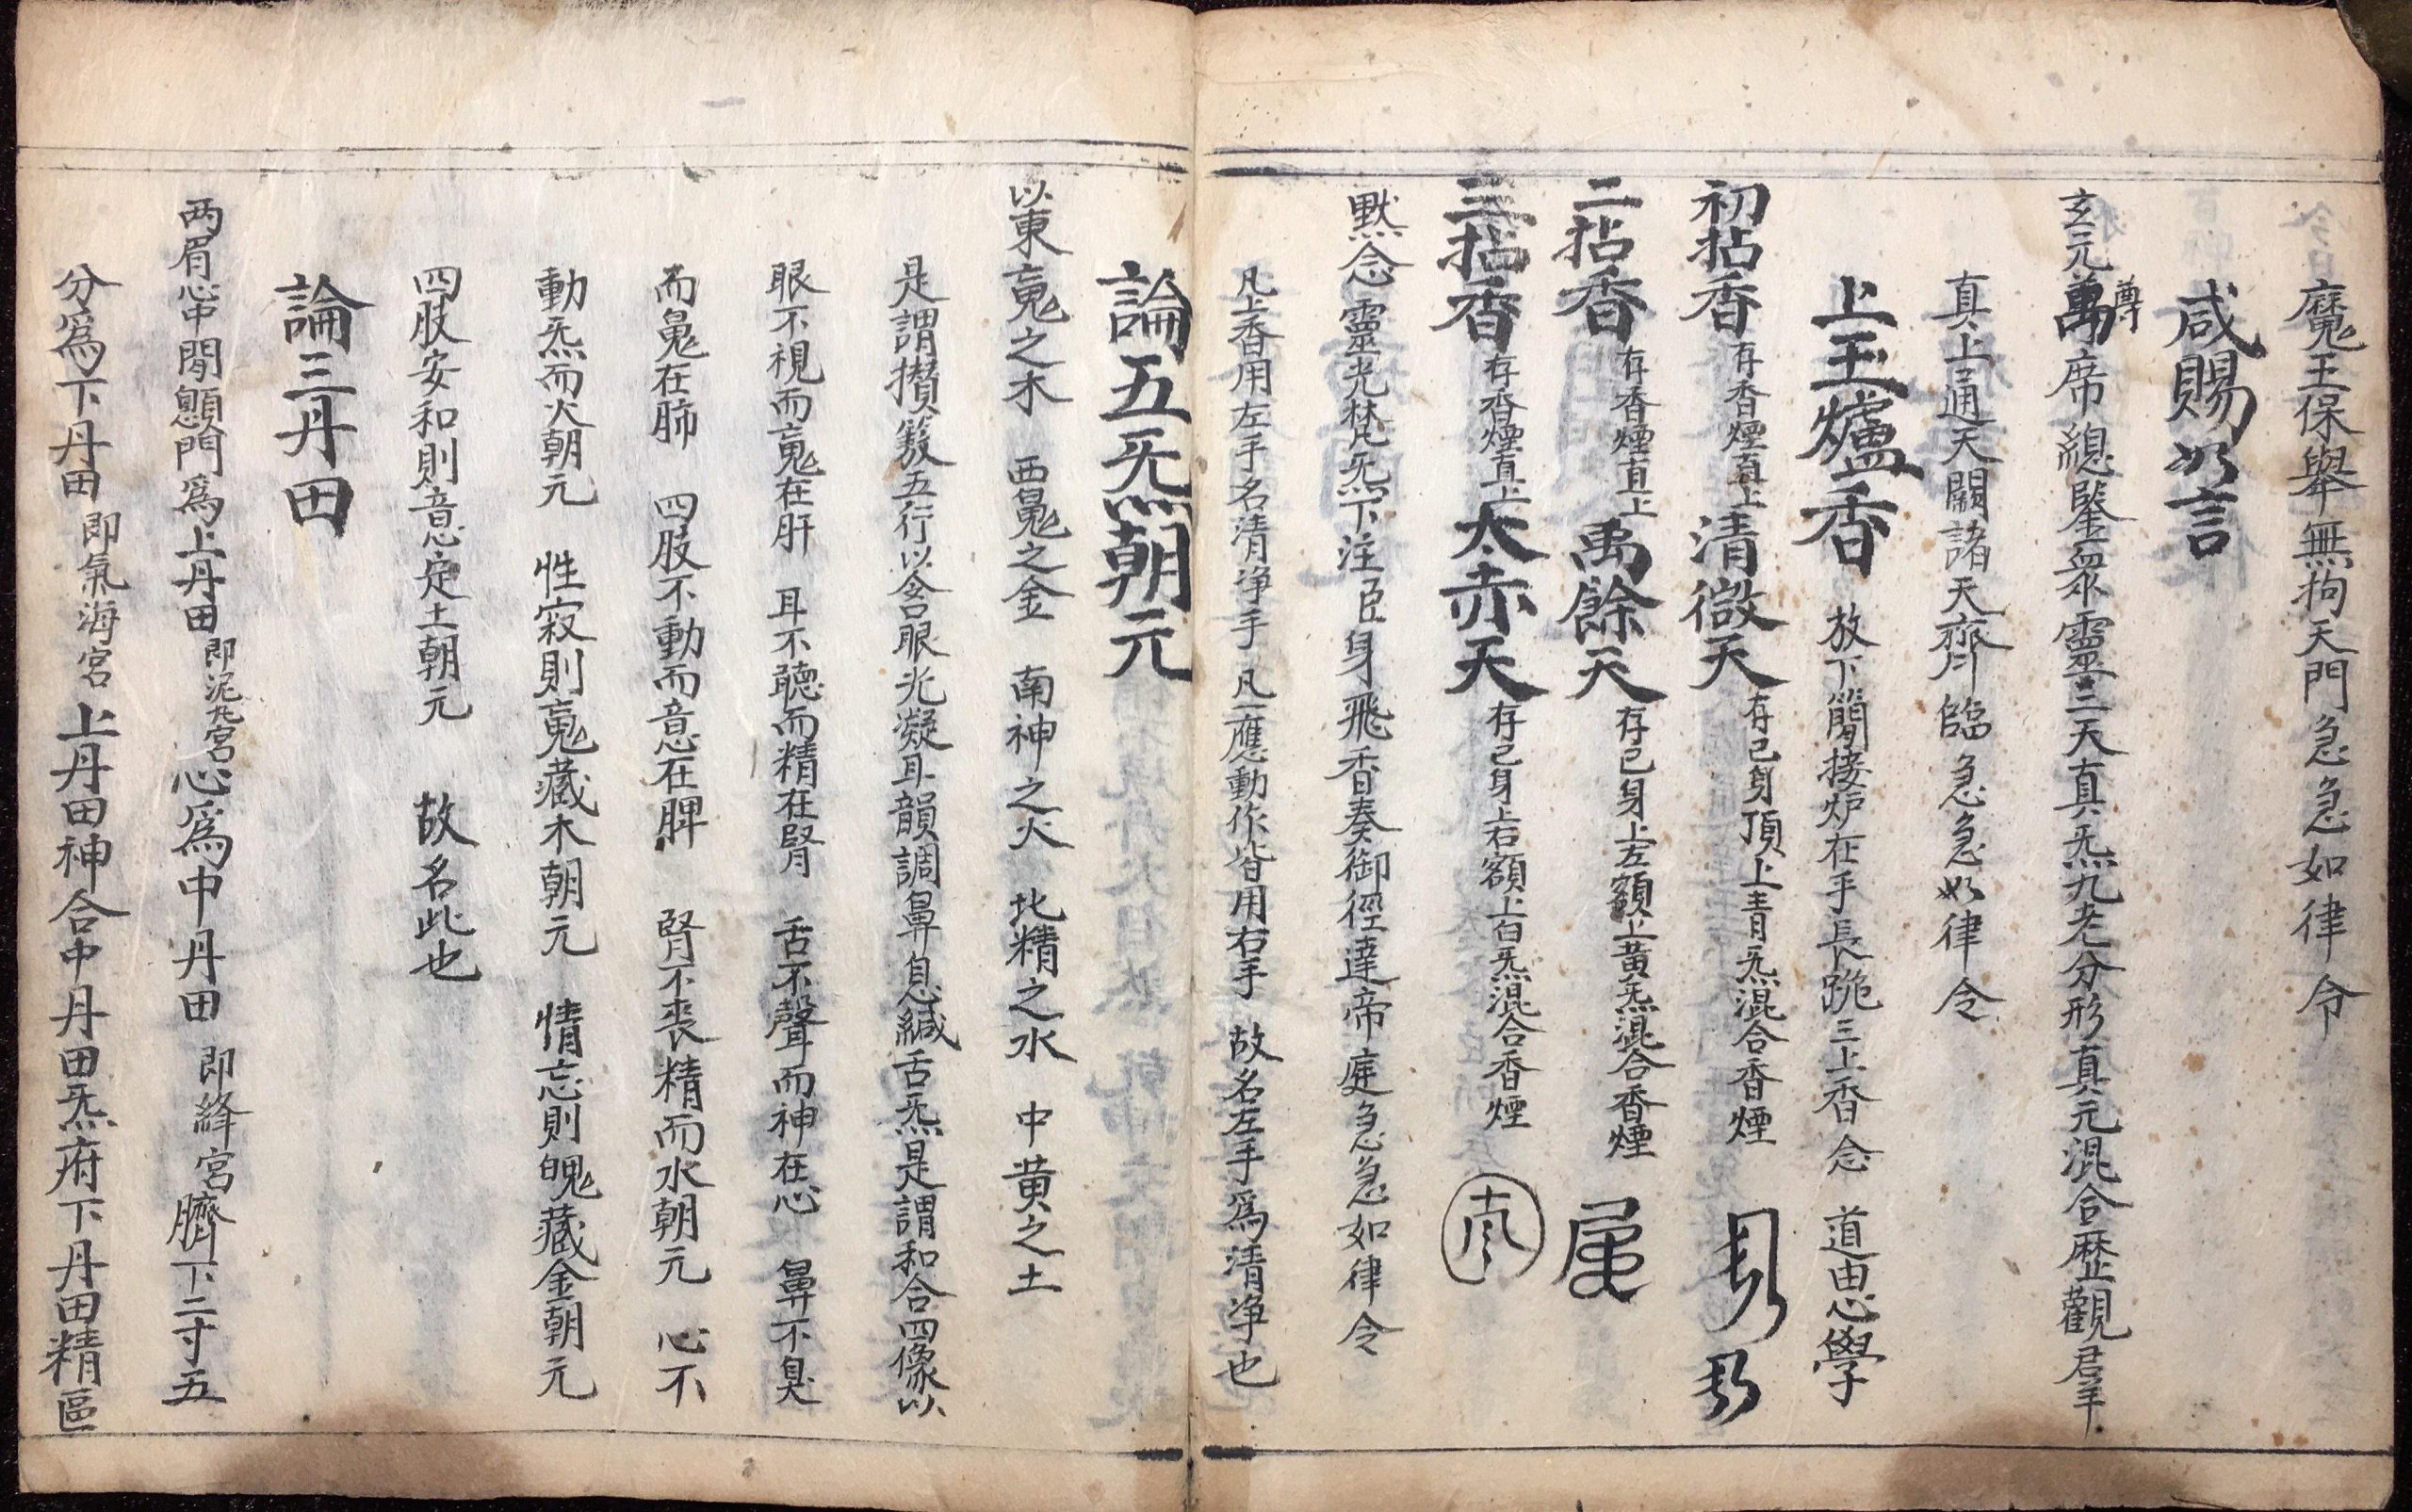 魔王保舉無拘天門急急如律令
咸賜如言
玄元萬尊席總鑒眾靈三天真炁九老分形真元混合歷觀君羊
真上通天闕諸天齊臨急急如律令
上玉爐香 放下簡接炉在手長跪三上香念 道由心學
初拈香 存香煙直上 清微天 存己身頂上青炁混合香煙
二拈香 存香煙直上 禹餘天 存己身上左額上黃炁混合香煙
三拈香 存香煙直上 太赤天 存己身上右額上白炁混合香煙
默念靈光梵炁下注臣身飛香奏御徑達帝庭急急如律令
凡上香用左手名清净手 凡應動作皆用右手 故名左手爲清净也
論五炁朝元
以東䰟之木 西䰟之金 南神之火 北精之水 中黃之土
是謂攅簇五行以含眼光凝耳韻調鼻息緘舌炁是謂和合四像以
眼不視而䰟在肝 耳不聽而精在腎 舌不聲而神在心 鼻不臭
而䰟在肺 四肢不動而意在脾 腎不喪精而水朝元 心不
動炁而火朝元 性寂則䰟藏木朝元 情忘則魄藏金朝元
四肢安和則意定土朝元 故名此也
論三丹田
两眉心中間顖門爲上丹田 即泥丸宮 心爲中丹田 即絳宮 臍下二寸五
分爲下丹田 即氣海宮 上丹田神合中丹田炁府下丹田精區